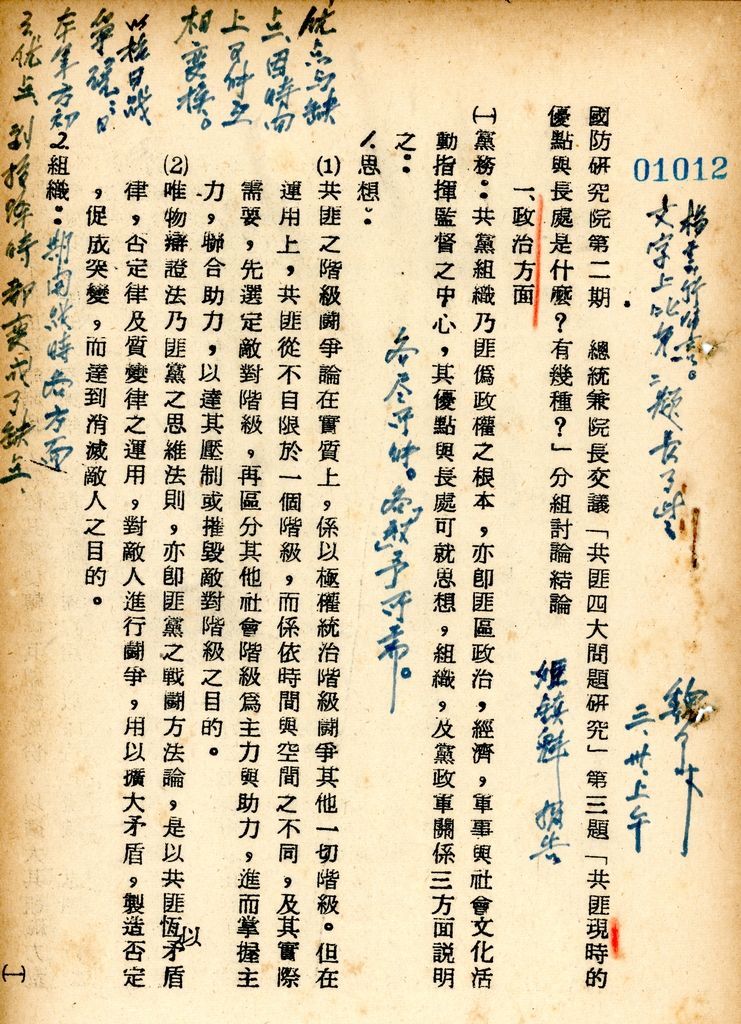 01012
國防研究院第二期　總統兼院長交議「共匪四大問題研究」第三題「共匪現時的
優點與長處是什麼？有幾種？」分組討論結論
報告
三、卅、上午
一、政治方面
㈠黨務：共黨組織乃匪僞政權之根本，亦卽匪區政治，經濟，軍事與社會文化活
動指揮監督之中心，其優點與長處可就思想，組織，及黨政軍關係三方面説明
之：
各尽所能。各取予所需。
1.思想：
(1)共匪之階級鬪爭論在實質上，係以極權統治階級鬪爭其他一切階級。但在
運用上，共匪從不自限於一個階級，而係依時間與空間之不同，及其實際
需要，先選定敵對階級，再區分其他社會階級爲主力與助力，進而掌握主
力，聯合助力，以達其壓制或摧毀敵對階級之目的。
(2)唯物辯證法乃匪黨之思維法則，亦卽匪黨之戰鬪方法論，是以共匪恆以矛盾
律，否定律及質變律之運用，對敵人進行鬪爭，用以擴大矛盾，製造否定
，促成突變，而達到消滅敵人之目的。
2.組織：
优点与缺
点因時间
相變換。
以抗日战
都變成了缺点、
㈠